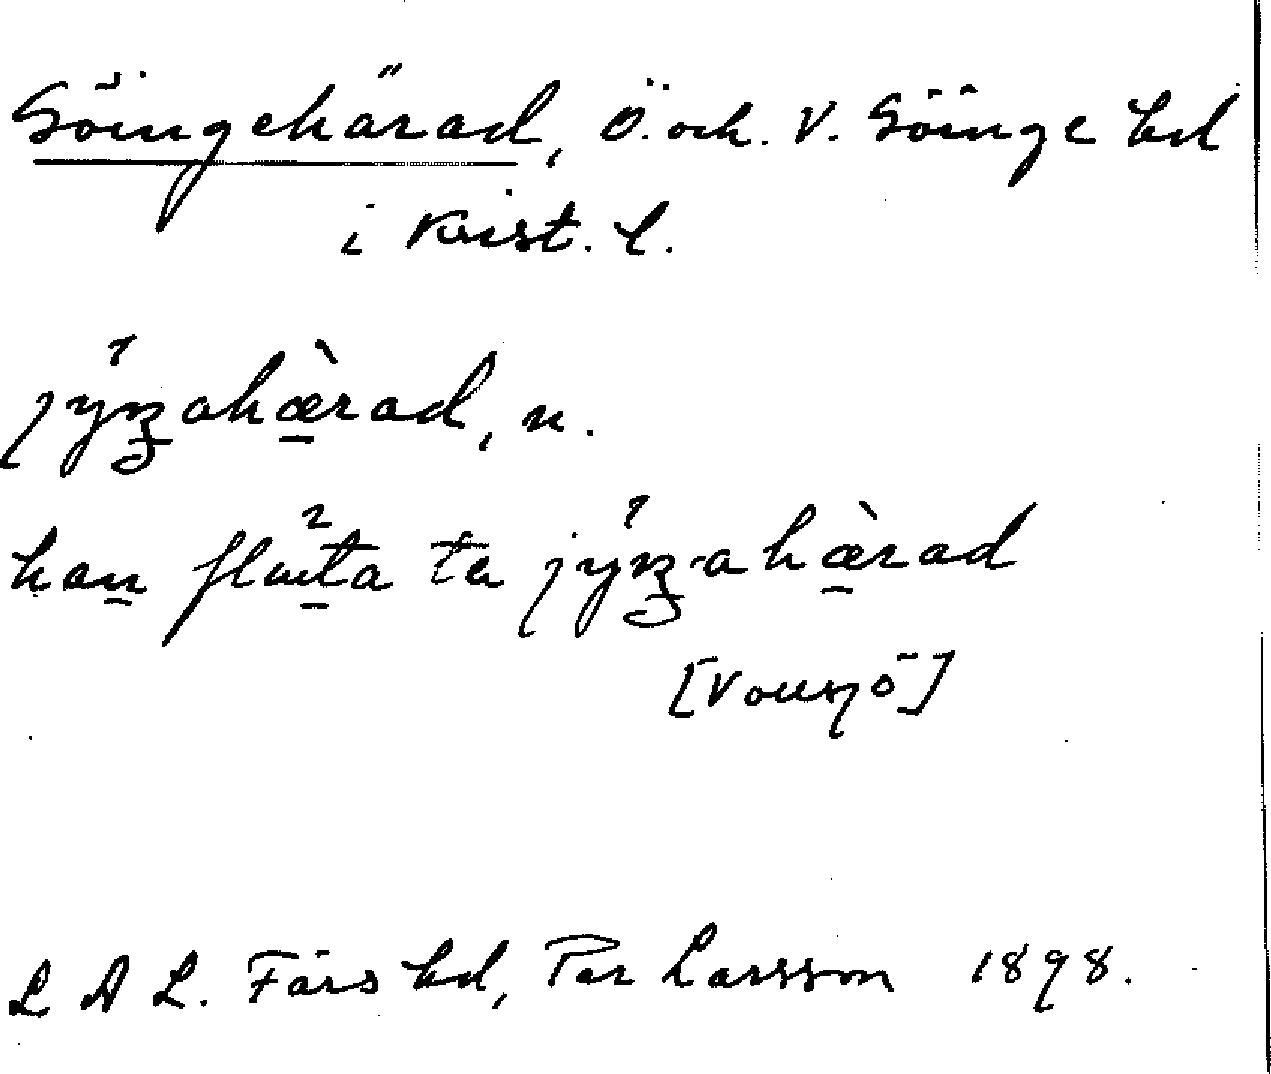 Göingehärad, Ö. och. V. Göinge hd
i Krist. l.
jyŋahæ̀rad, n.
han fløta te jyŋahæ̀rad
[Vousjö]
L A L. Färs hd, Per Larsson 1898.